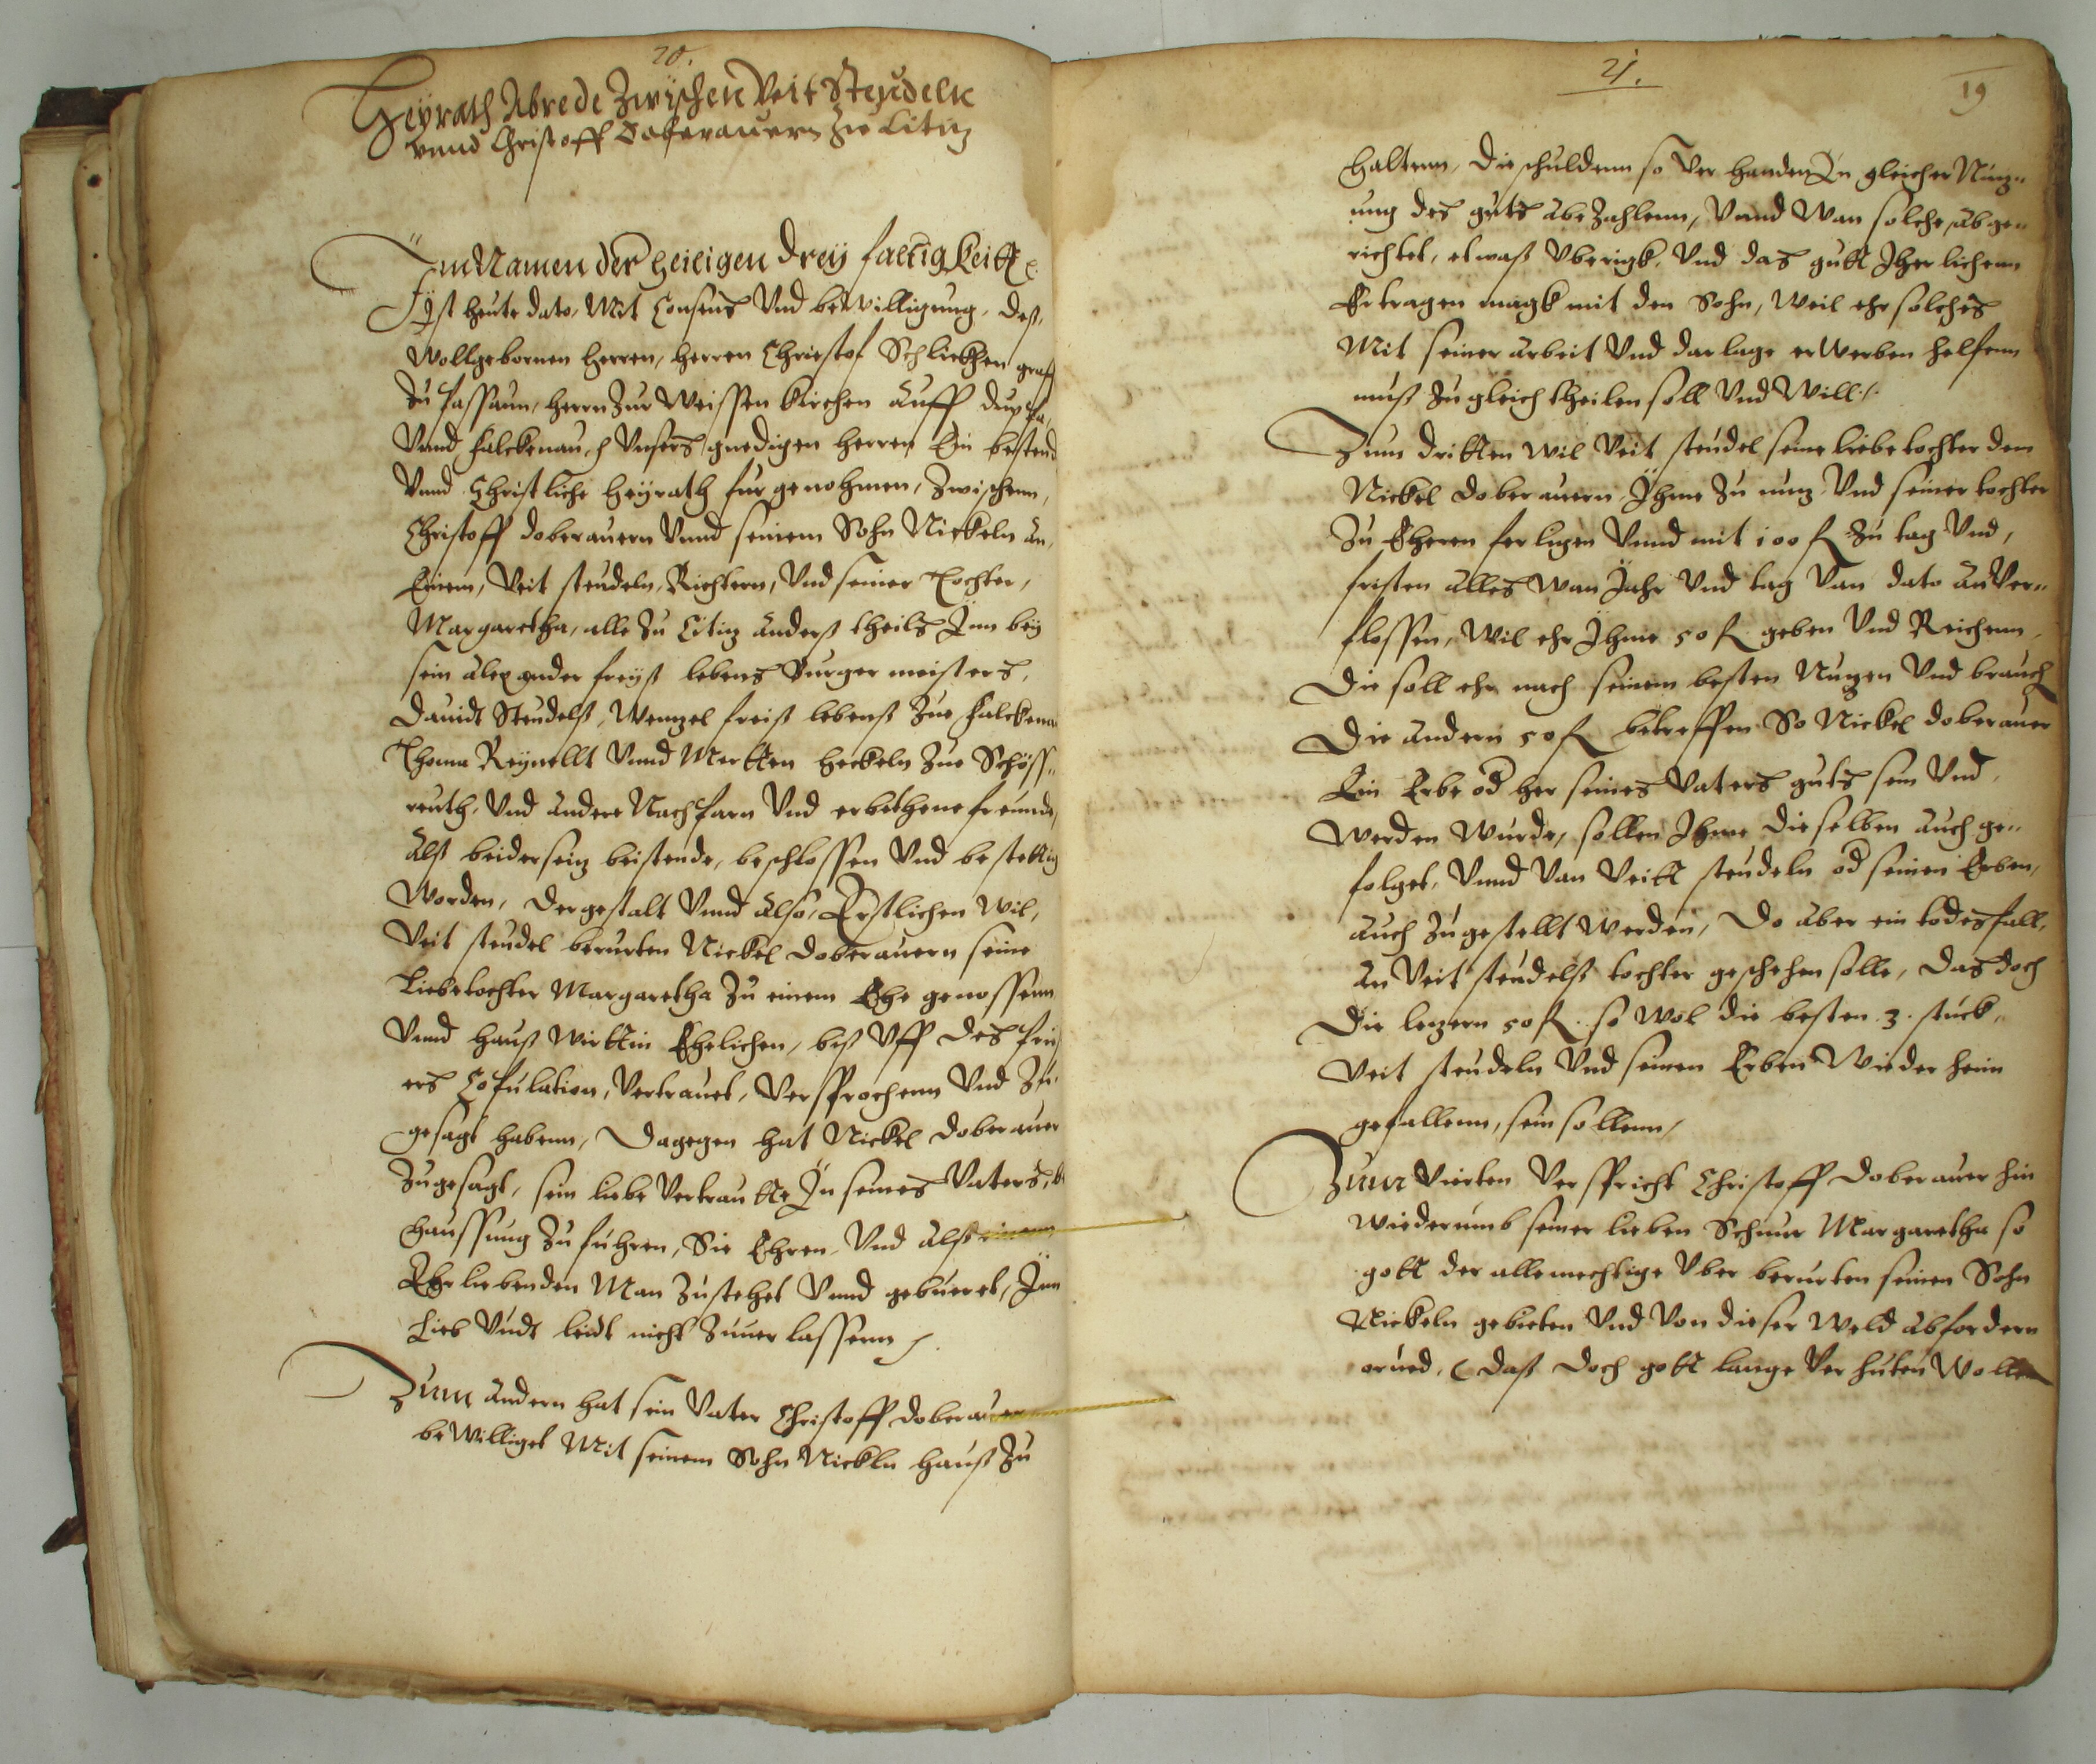 20.
Heÿrath Abrede Zwischen Veit Steudeln
vnnd Christoff Doberauern Zu Litiz
Im Namen der heiligen Dreÿ faltigkeitt
Ist heute dato, Mit Consens Vnd bewilligung, deß
Wollgebornen herren, herren Christof Schlickhen graf
Zu Passaun, herrn Zur Weissen Kirchen auff dup
Vnnd falckenau, Vnsers gnedigen herren Ein bestend
Vnnd Christliche heÿrath fur genohmen, Zwischenn,
Christoff doberauern Vnnd seinem Sohn Nickeln an,
Einem, Veit steudeln, Richtern, Vnd seiner Tochter,
Margaretha, alle Zu Litiz anderß theilß Inn beÿ
sein alexander freÿß lebens burger meisters,
Dauidt Steudelß, Wenzel freiß lebenß Zue falckenau
Thoma Reÿnellt Vnnd Mertten heckeln Zue Schöss„
reuth, Vnd andere Nachparn Vnd erbethene freunde,
Alß beiderseiz beistende, beschlossen Vnd bestettig
Worden, der gestalt Vnnd also, Erstlichen Wil,
Veit steudel berurten Nickel doberauern seine
Liebe tochter Margaretha Zu einem Ehe genossenn
Vnnd hauß Wirttin Ehelichen, biß Vff des prist
ers Copulation, Vertrauet, Versprochenn Vnd Zu„
gesagt habenn, Dagegen hat Nickel doberauer
Zugesagt, sein liebe Vertrautte In seines Vaters, b
haussung Zu fuhren, Sie Ehren, Vnd alß einem
Ehrliebenden Man Zustehet Vnnd gebueret, Inn
Lieb Vndt leidt nicht Zuuerlassenn
Zum andern hat sein Vater Christoff doberauer
beWilliget Mit seinem Sohn Nickln hauß Zu
21.
19
haltenn, die schuldenn so Ver handen In gleicher Nuz„
ung des guts abeZahlenn, Vnnd Wan solche, abge„
richtet, etwaß Vberigk, Vnd das gutt Iherlichenn
Ertragen magk mit den Sohn, Weil ehr solches
Mit seiner arbeit Vnd darlage erWerben helfenn
muß Zugleich theilen soll Vnd Will.
Zum dritten wil Veit steudel seine liebe tochter dem
Nickel doberauern, Ihme Zu nuz Vnd seiner tochter
Zu Eheren fertigen Vnnd mit 100 fl Zu tag Vnd,
fristen alles Wan Jahr Vnd tag Van dato anVer„
flossen, Wil ehr Ihme 50 fl geben Vnd Reichenn,
Die soll ehr nach seinem besten Nuzen Vnd brauch
Die andern 50 fl betreffen So Nickel doberauer
Ein Erbe od her seines Vaters guts sein Vnd,
Werden Wurde, sollen Ihme dieselben auch ge„
folget, Vnnd Van Veitt steudeln od seinen Erben,
auch Zugestellt Werden, Do aber ein todesfall,
an Veit steudelß tochter geschehen solle, das doch
Die lezern 50 fl. so Wol die besten .3. stuck,
Veit steudeln Vnd seinen Erben Wieder heim
gefallenn, sein sollenn,
Zum Vierten Verspricht Christoff doberauer hin
Wiederumb seiner lieben Schnur Margaretha so
gott der allemechtige Vber berurten seinen Sohn
Nickeln gebieten Vnd Von dieser Weld abfordern
daß doch gott lange Ver huten Wolle